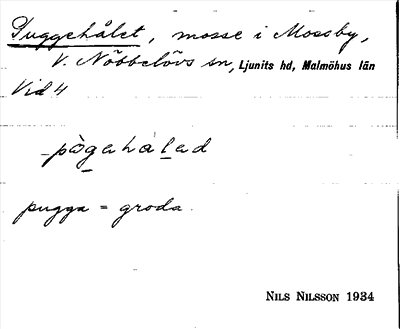 Puggehålet, mosse i Mossby,
V. Nöbbelövs sn, Ljunits hd, Malmöhus län
Vid 4
pògahàlad
pugga = groda.
NILS NILSSON 1934